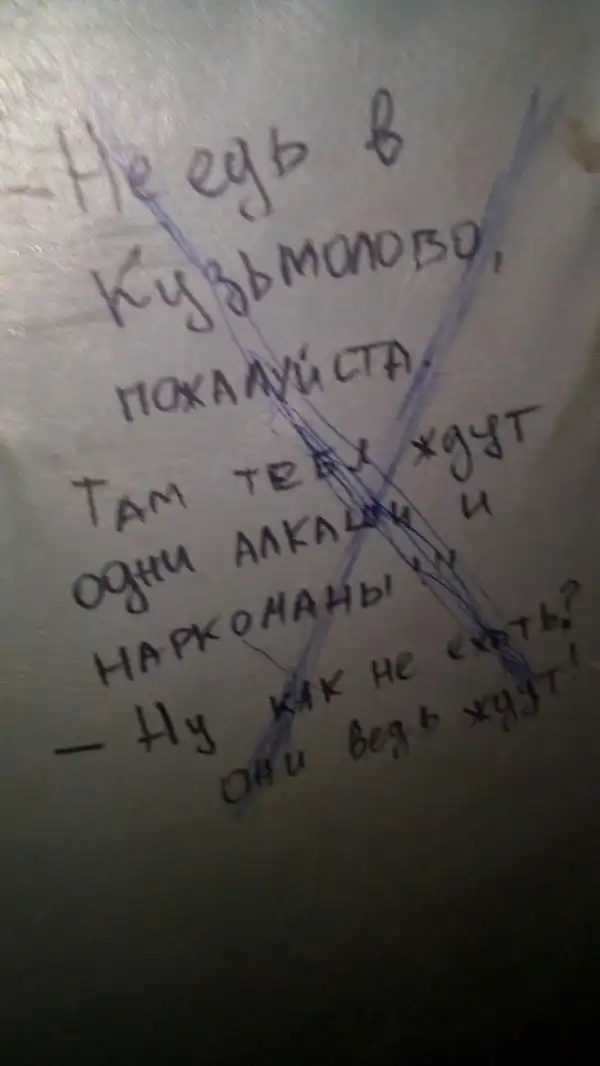 - Не едь в
Кузьмолово,
пожалуйста.
Там тебя ждут
одни алкаши и
наркоманы...
- Ну как не ехать?
Они ведь ждут!